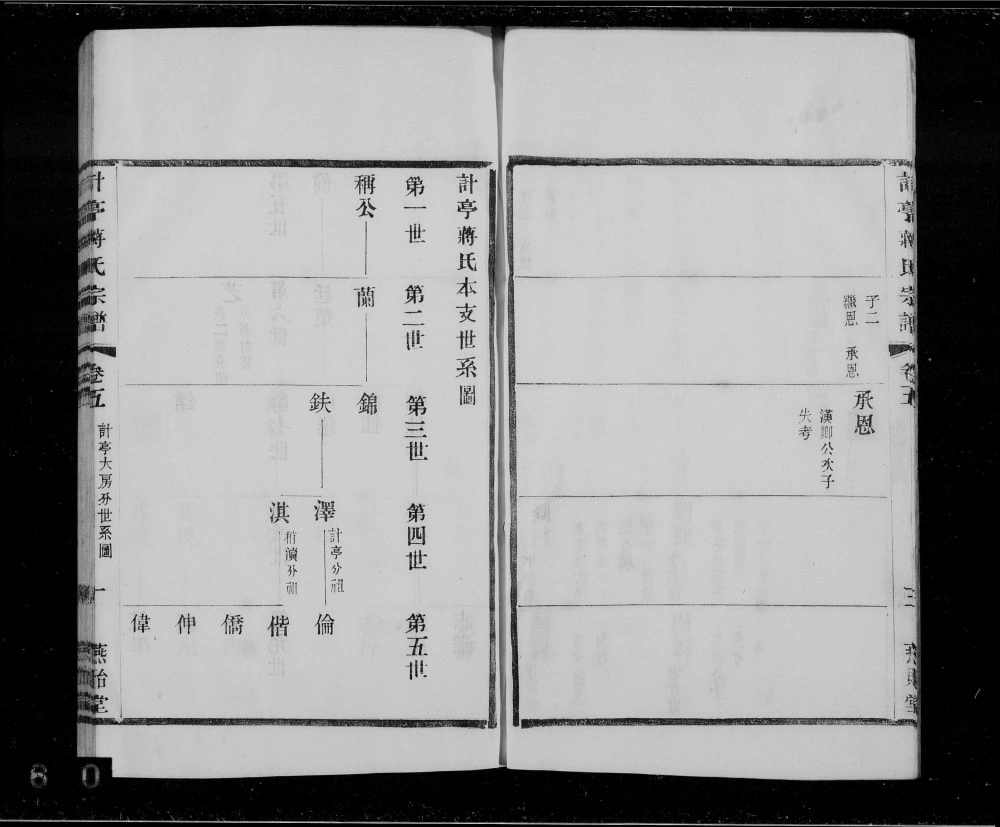 計亭蔣氏宗譜
卷五
三
燕貽堂
子二
繼恩 承恩
承恩
漢卿公次子
失考
計亭蔣氏本支世系圖
第一世 第二世 第三世 第四世 第五世
稱公 蘭 錦
鈇 澤 倫
計亭分祖
淇 偕
梢瀆分祖
僑
伸
偉
計亭蔣氏宗譜
卷五
計亭大房分世系圖
一
燕貽堂
60